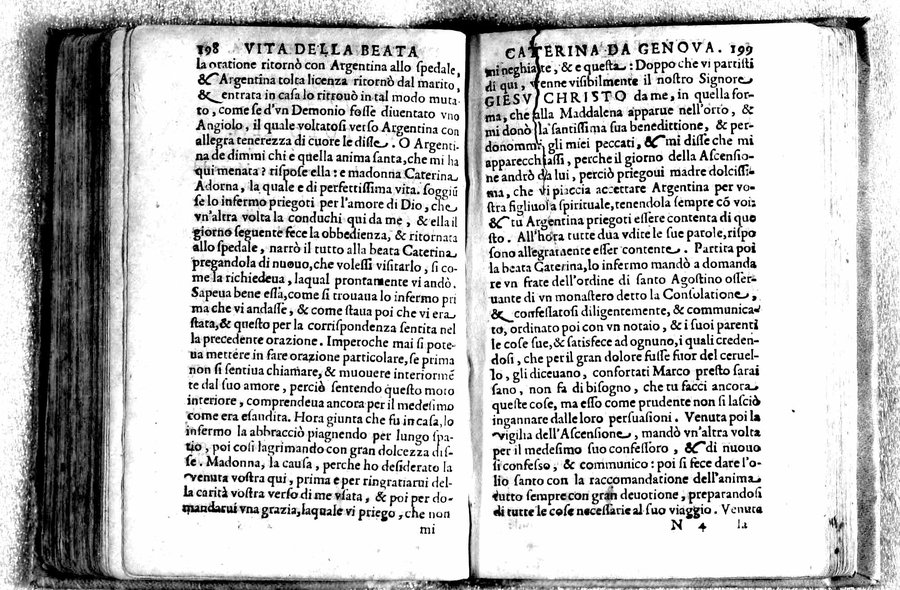 198 VITA DELLA BEATA
la oratione ritornò con Argentina allo spedale,
& Argentina tolta licenza ritornò dal marito,
& entrata in casa lo ritrouò in tal modo muta-
to, come se d'vn Demonio fosse diuentato vno
Angiolo, il quale voltatosi verso Argentina con
allegra tenerezza di cuore le disse. O Argenti-
na de dimmi chi e quella anima santa, che mi ha
qui menata? rispose ella: e madonna Caterina
Adorna, la quale e di perfettissima vita. soggiũ
se lo infermo priegoti per l'amore di Dio, che
vn'altra volta la conduchi qui da me, & ella il
giorno seguente fece la obbedienza, & ritornata
allo spedale, narrò il tutto alla beata Caterina
pregandola di nuouo, che volessi visitarlo, si co-
me la richiedeua, laqual prontamente vi andò.
Sapeua bene essa, come si trouaua lo infermo pri
ma che vi andasse, & come staua poi che vi era
stata, & questo per la corrispondenza sentita nel
la precedente orazione. Imperoche mai si pote-
ua mettere in fare orazione particolare, se prima
non si sentiua chiamare, & muouere interiormẽ
te dal suo amore, perciò sentendo questo moto
interiore, comprendeua ancora per il medesimo
come era esaudita. Hora giunta che fu in casa, lo
infermo la abbracciò piagnendo per lungo spa-
tio, poi così lagrimando con gran dolcezza dis-
se. Madonna, la causa, perche ho desiderato la
venuta vostra qui, prima e per ringratiarui del-
la carità vostra verso di me vsata, & poi per do-
mandarui vna grazia, laquale vi priego, che non
mi
CATERINA DA GENOVA. 199
mi neghiate, & e questa: Doppo che vi partisti
di qui, venne visibilmente il nostro Signore
GIESV CHRISTO da me, in quella for-
ma, che alla Maddalena apparue nell'orto, &
mi donò la santissima sua benedittione, & per-
donommi gli miei peccati, & mi disse che mi
apparecchiassi, perche il giorno della Ascensio-
ne andrò da lui, perciò priegoui madre dolcissi-
ma, che vi piaccia accettare Argentina per vo-
stra figliuola spirituale, tenendola sempre cõ voi
& tu Argentina priegoti essere contenta di que
sto. All'hora tutte dua vdite le sue parole, rispo
sono allegramente esser contente. Partita poi
la beata Caterina, lo infermo mandò a domanda
re vn frate dell'ordine di santo Agostino osser-
uante di vn monastero detto la Consolatione,
& confessatosi diligentemente, & communica-
to, ordinato poi con vn notaio, & i suoi parenti
le cose sue, & satisfece ad ognuno, i quali creden-
dosi, che per il gran dolore fusse fuor del ceruel-
lo, gli diceuano, confortati Marco presto sarai
sano, non fa di bisogno, che tu facci ancora
queste cose, ma esso come prudente non si lasciò
ingannare dalle loro persuasioni. Venuta poi la
vigilia dell'Ascensione, mandò vn'altra volta
per il medesimo suo confessoro, & di nuouo
si confesso, & communico: poi si fece dare l'o-
lio santo con la raccomandatione dell'anima
tutto sempre con gran deuotione, preparandosi
di tutte le cose necessarie al suo viaggio. Venuta
N 4 la